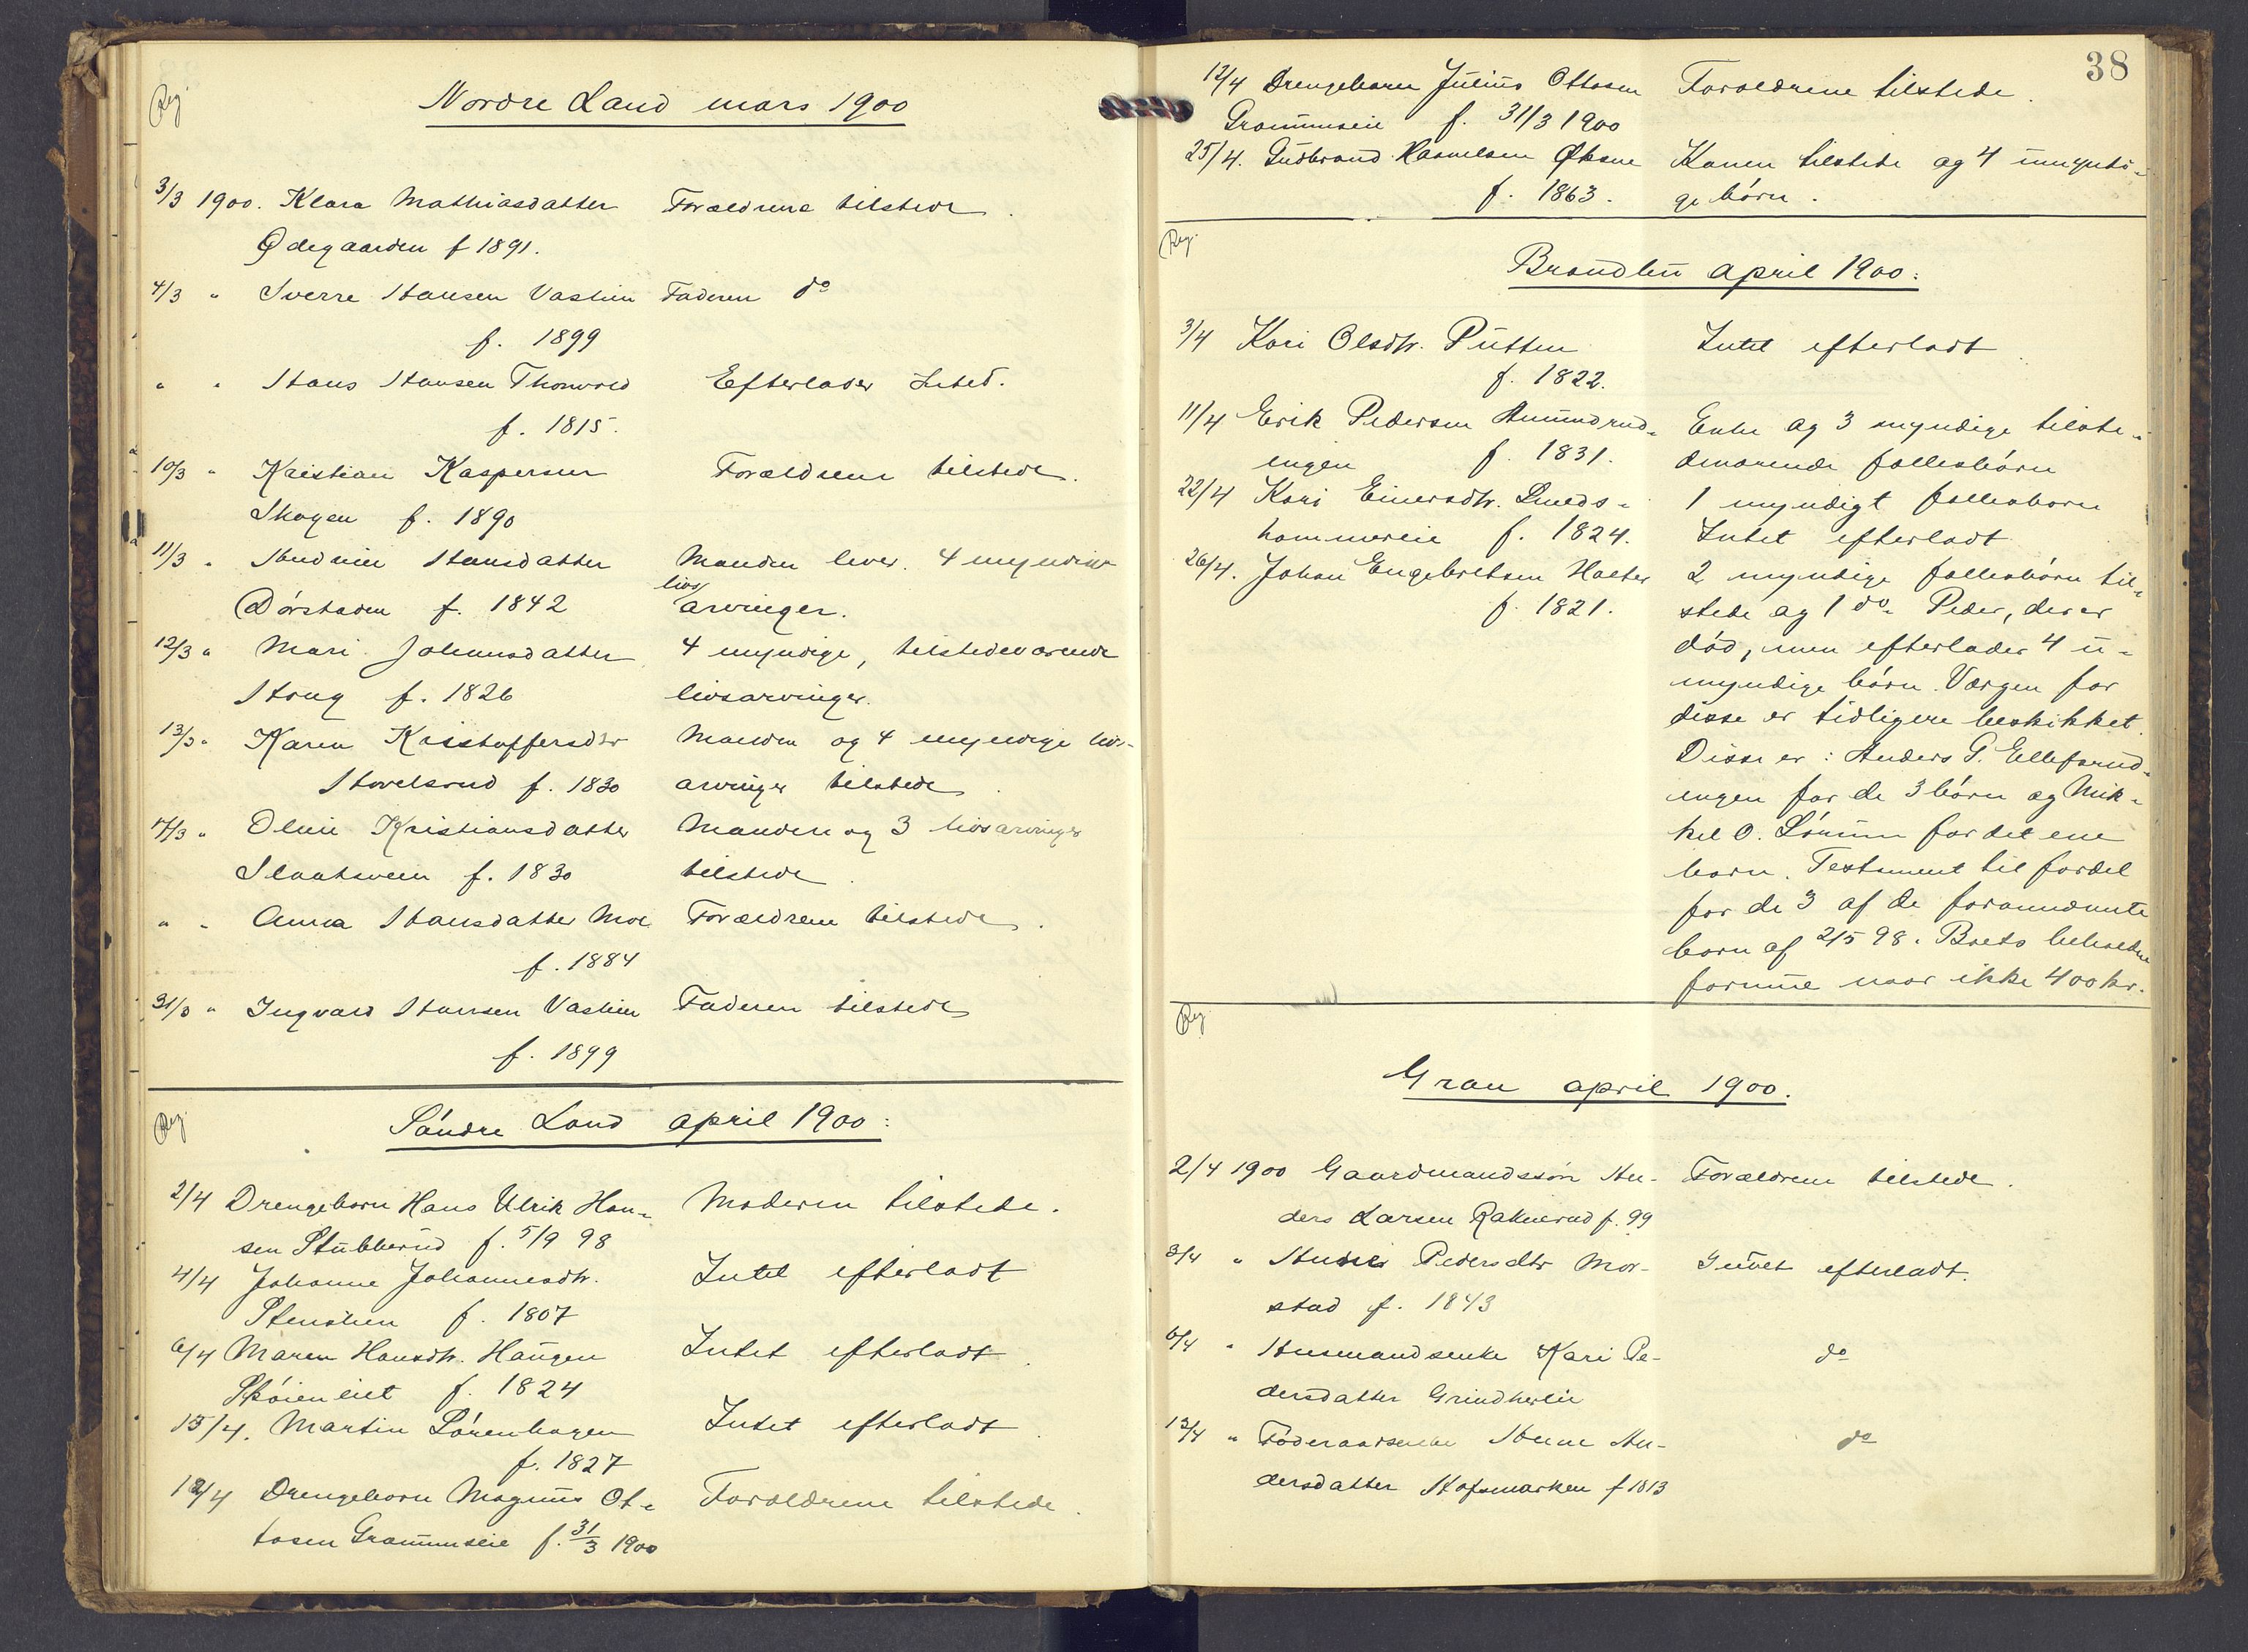 Reg.
Nordre Land mars 1900
3/3 1900. Klara Mathiasdatter Forældrene tilstede.
Ødegaarden f 1891.
4/3 " Sverre Hansen Vastien Faderen do
f. 1899
" " Hans Hansen Thomrud Efterlader Intet.
f. 1815.
10/3 " Kristian Kaspersen Forældrene tilstede.
Skogen f. 1890
11/3 " Hansdatter Manden lever. 4 myndige
livs
f. 1842 arvinger.
12/3 " Mari Johannsdatter 4 myndige, tilstedeværende
f. 1826 livsarvinger.
13/3 " Karen Kristoffersdtr Manden og 4 myndige livs-
Hovelsrud f. 1830 arvinger tilstede.
17/3 " Oline Kristiansdatter Manden og 3 livsarvinger
Slaatsveen f. 1830 tilstede.
" " Anna Hansdatter Moe Forældrene tilstede.
f. 1884
31/3 " Ingvard Hansen Vastien Faderen tilstede
f. 1899
Reg.
Søndre Land april 1900:
2/4 Drengebarn Hans Ulrik Han- Moderen tilstede.
sen Stubberud f. 5/9 98
4/4 Johanne Johannesdtr. Intet efterladt
f. 1807
6/4 Maren Hansdtr. Haugen Intet efterladt.
Skøieneiet f. 1824
15/4. Martin Sørenhagen Intet efterladt.
f. 1827
12/4 Drengebarn Magnus Ot- Forældrene tilstede.
tosen Grammseie f. 31/3 1900
38
12/4 Drengebarn Julius Ottosen Forældrene tilstede.
Grammseie f. 31/3 1900
25/4. Gudbrand Øksne Konen tilstede og 4 umyndi-
f. 1863. ge børn.
Reg.
Brandbu april 1900:
3/4 Kari Olsdtr. Putten Intet efterladt.
f. 1822.
11/4 Erik Pedersen Amundrud- Enke og 3 myndige tilste-
engen f. 1831. deværende fællesbørn
22/4 Kari Einersdtr. Smeds- 1 myndigt fællesbarn
hammereie f. 1824. Intet efterladt.
26/4. Johan Engebretsen Halter 2 myndige fællesbørn til-
f. 1821. stede og 1 do. Peder, der er
død, men efterlader 4 u-
myndige børn. Værgen for
disse er tidligere beskikket.
Disse er: Anders P. Ellefsrud-
engen for de 3 børn og Mik-
kel O. Sørum for det ene
barn. Testament til fordel
for de 3 af de forannævnte
børn af 2/5 98. Boets beholdne
formue naar ikke 400 kr.
Reg.
Gran april 1900.
2/4 1900 Gaardmandssøn An- Forældrene tilstede.
ders Larsen Raknerud f. 99
3/4 " Pedersdtr Mor- Intet efterladt.
stad f. 1843
6/4 " Husmandsenke Kari Pe- do
dersdatter Grindherlie
13/4 " Føderaadsenke Anne An- do
dersdatter Hofsmarken f 1813